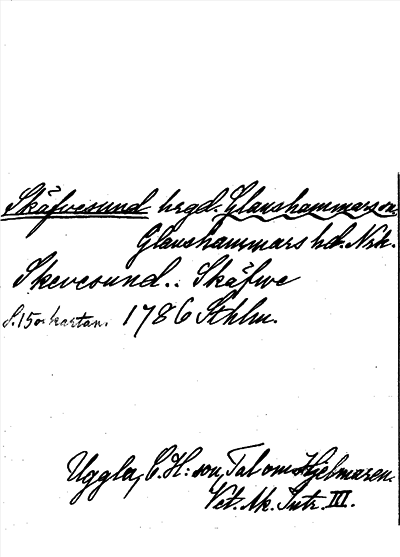 Skäfvesund hrgd. Glanshammars sn,
Glanshammars hd. Nrk.
Skevesund.. Skäfwe
S. 15 o. kartan. 1786 Sthlm.
Uggla, C. H:son, Tal om Hjelmaren.
Vet. Ak. Intr. III.